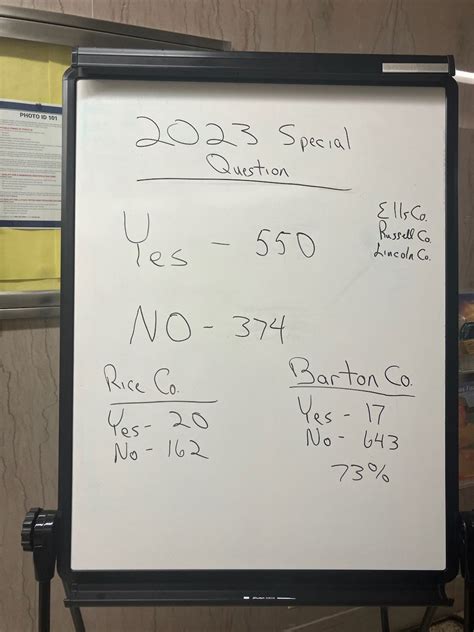 PHOTO ID 101
2023 Special
Question
Ells Co.
Russell Co.
Lincoln Co.
Yes - 550
NO - 374
Rice Co.
Yes - 20
No - 162
Barton Co.
Yes - 17
No - 643
73%